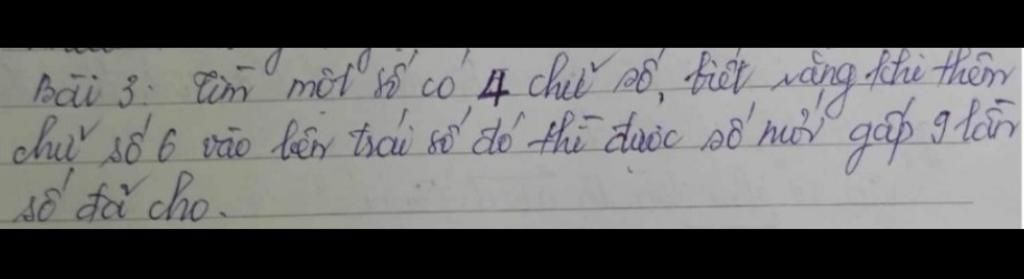 Bài 3: Tìm một số có 4 chữ số, biết rằng khi thêm
chữ số 6 vào bên trái số đó thì được số mới gấp 9 lần
số đã cho.